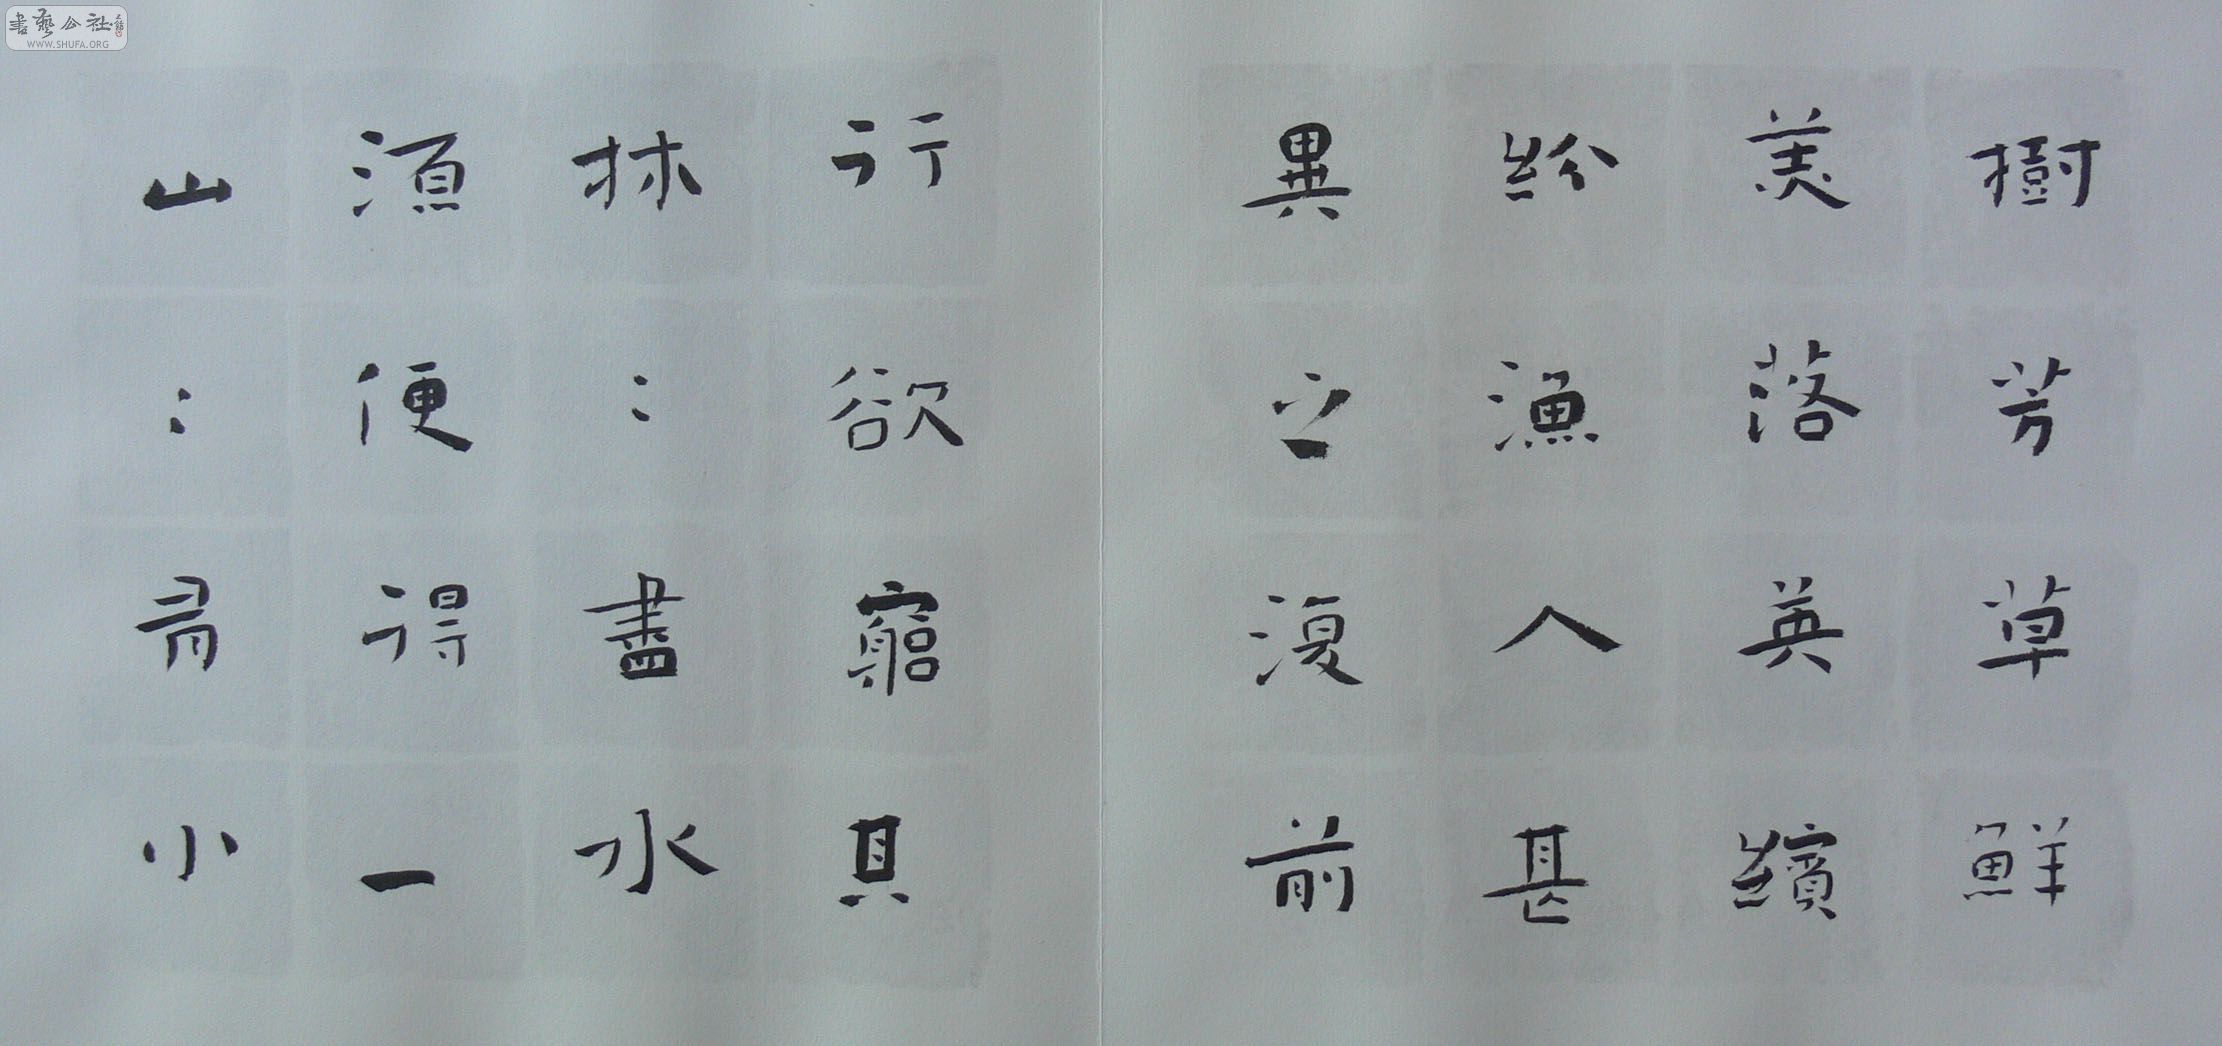 樹芳草鮮
美落英繽
紛漁人甚
異之復前
行欲窮其
林〻盡水
源便得一
山〻有小
書藝公社
WWW.SHUFA.ORG